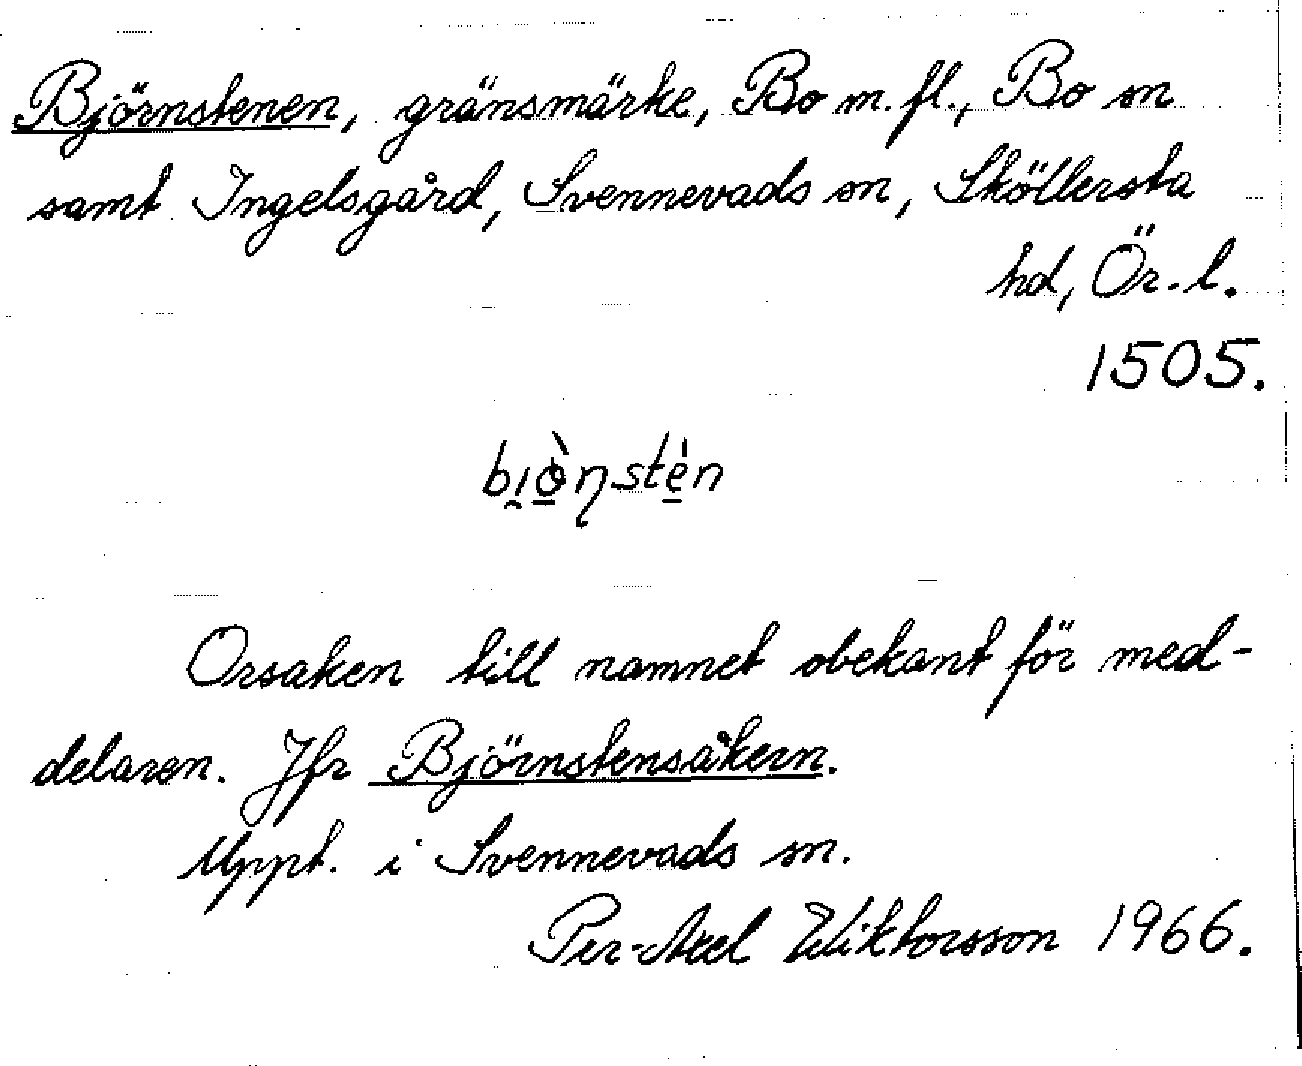 Björnstenen, gränsmärke, Bo m. fl., Bo sn
samt Ingelsgård, Svennevads sn, Sköllersta
hd, Ör. l.
1505.
bi̯ö̀ṇstén
Orsaken till namnet obekant för med-
delaren. Jfr Björnstensåkern.
Uppt. i Svennevads sn.
Per-Axel Wiktorsson 1966.